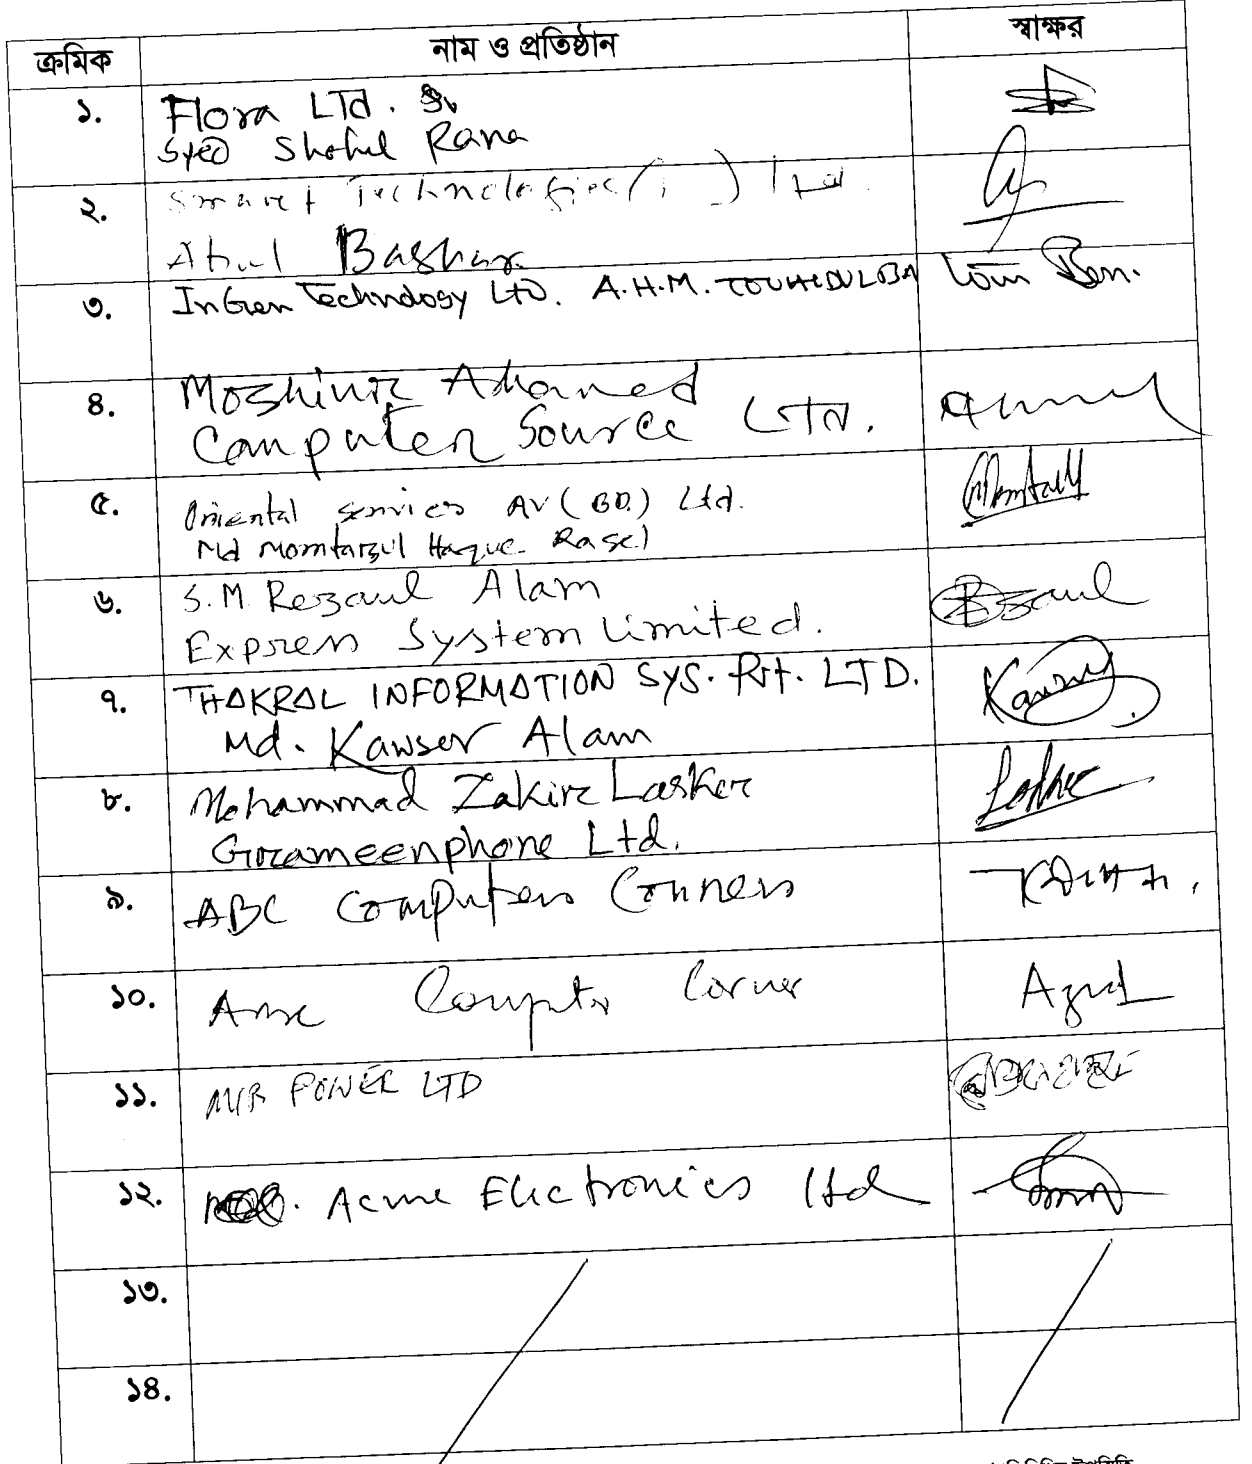 ক্রমিক নাম ও প্রতিষ্ঠান স্বাক্ষর
১. Flora LTd.
Syed Shohel Rana
২. Smart Technologies ( ) Ltd.
Abul Bashar
৩. InGen Technology LTD. A.H.M. TOUHIDUL
৪. Moshiur Ahamed
Computer Source LTD.
৫. Oriental Services AV (BD.) Ltd.
Md Momtazul Haque Rasel
৬. S.M. Rezaul Alam
Express System Limited.
৭. THAKRAL INFORMATION SYS. Pvt. LTD. Kawser
Md. Kawser Alam
৮. Mohammad Zakir Lasker
Grameenphone Ltd.
৯. ABC Computers Corners
১০. Computer Corner
১১. MIR POWER LTD
১২. Acme Electronics Ltd
১৩.
১৪.